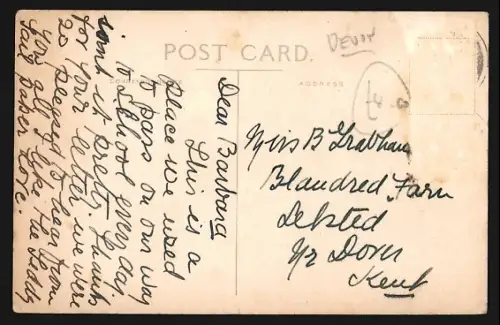 POST CARD.
DEVON
ADDRESS
Dear Barbara
This is a
place we used
to pass on our way
to School every day.
isint it pretty. Thanks
for your letter we were
so pleased to hear from
you all I like the Teddy
sail
Love.
Miss B Grabham
Blandred Farm
Nr Dover
Kent